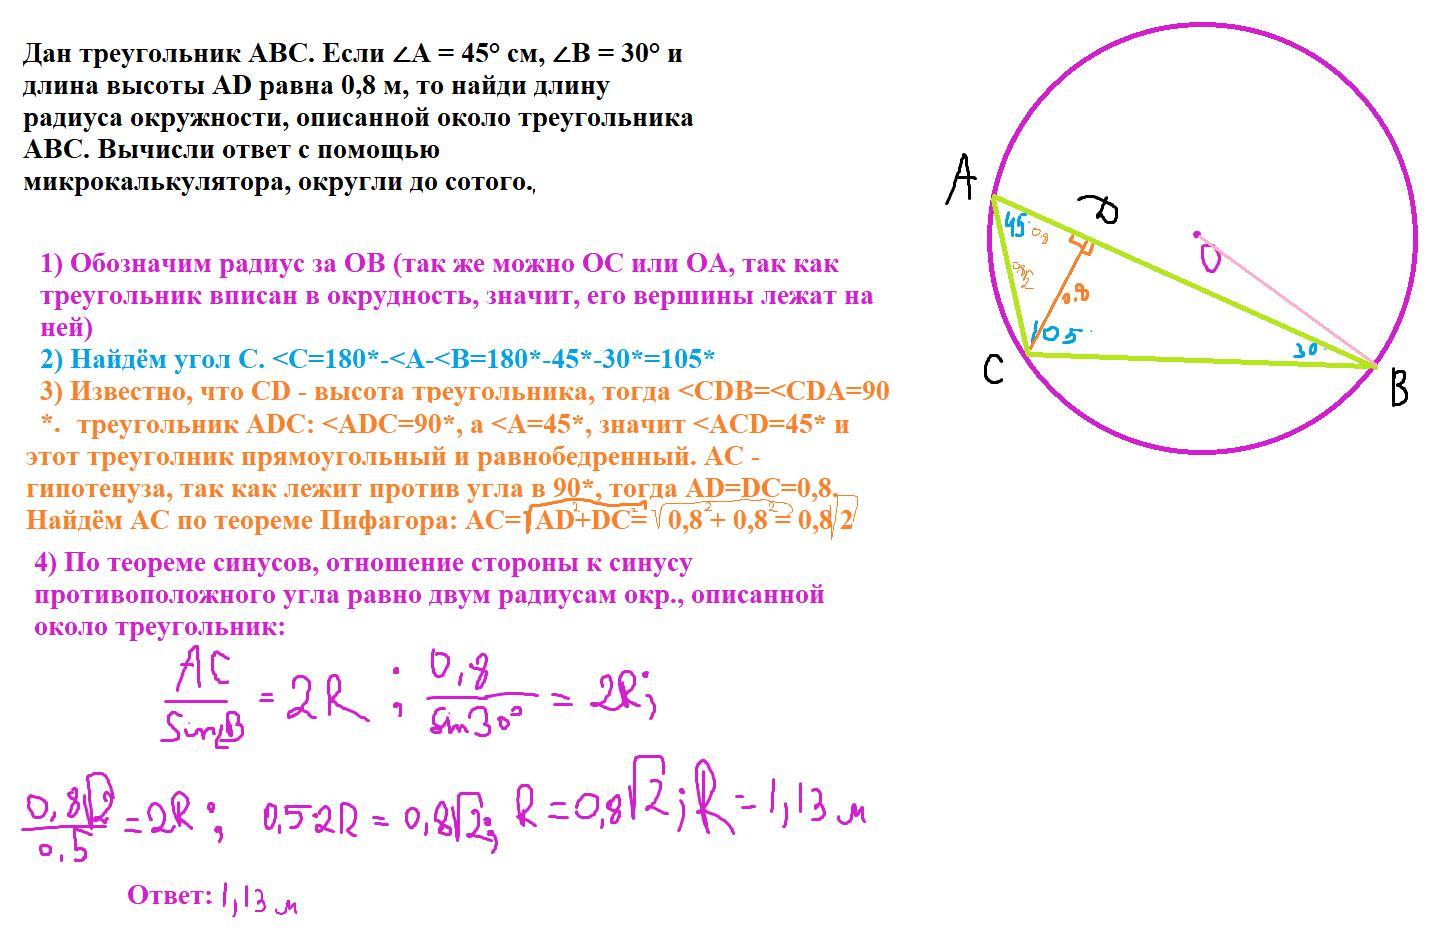 Дан треугольник ABC. Если ∠A = 45° см, ∠B = 30° и
длина высоты AD равна 0,8 м, то найди длину
радиуса окружности, описанной около треугольника
ABC. Вычисли ответ с помощью
микрокалькулятора, округли до сотого.
1) Обозначим радиус за OB (так же можно OC или OA, так как
треугольник вписан в окрудность, значит, его вершины лежат на
ней)
2) Найдём угол C. <C=180*-<A-<B=180*-45*-30*=105*
3) Известно, что CD - высота треугольника, тогда <CDB=<CDA=90
*. треугольник ADC: <ADC=90*, а <A=45*, значит <ACD=45* и
этот треуголник прямоугольный и равнобедренный. AC -
гипотенуза, так как лежит против угла в 90*, тогда AD=DC=0,8.
Найдём AC по теореме Пифагора: AC=√AD²+DC²=√0,8²+0,8²=0,8√2
4) По теореме синусов, отношение стороны к синусу
противоположного угла равно двум радиусам окр., описанной
около треугольник:
AC/sin∠B = 2R ; 0,8/sin30° = 2R;
0,8√2/0,5 = 2R; 0,5·2R = 0,8√2; R=0,8√2; R=1,13 м
Ответ: 1,13 м
A
D
45° 0,8
O
0.8
105°
30°
C
B